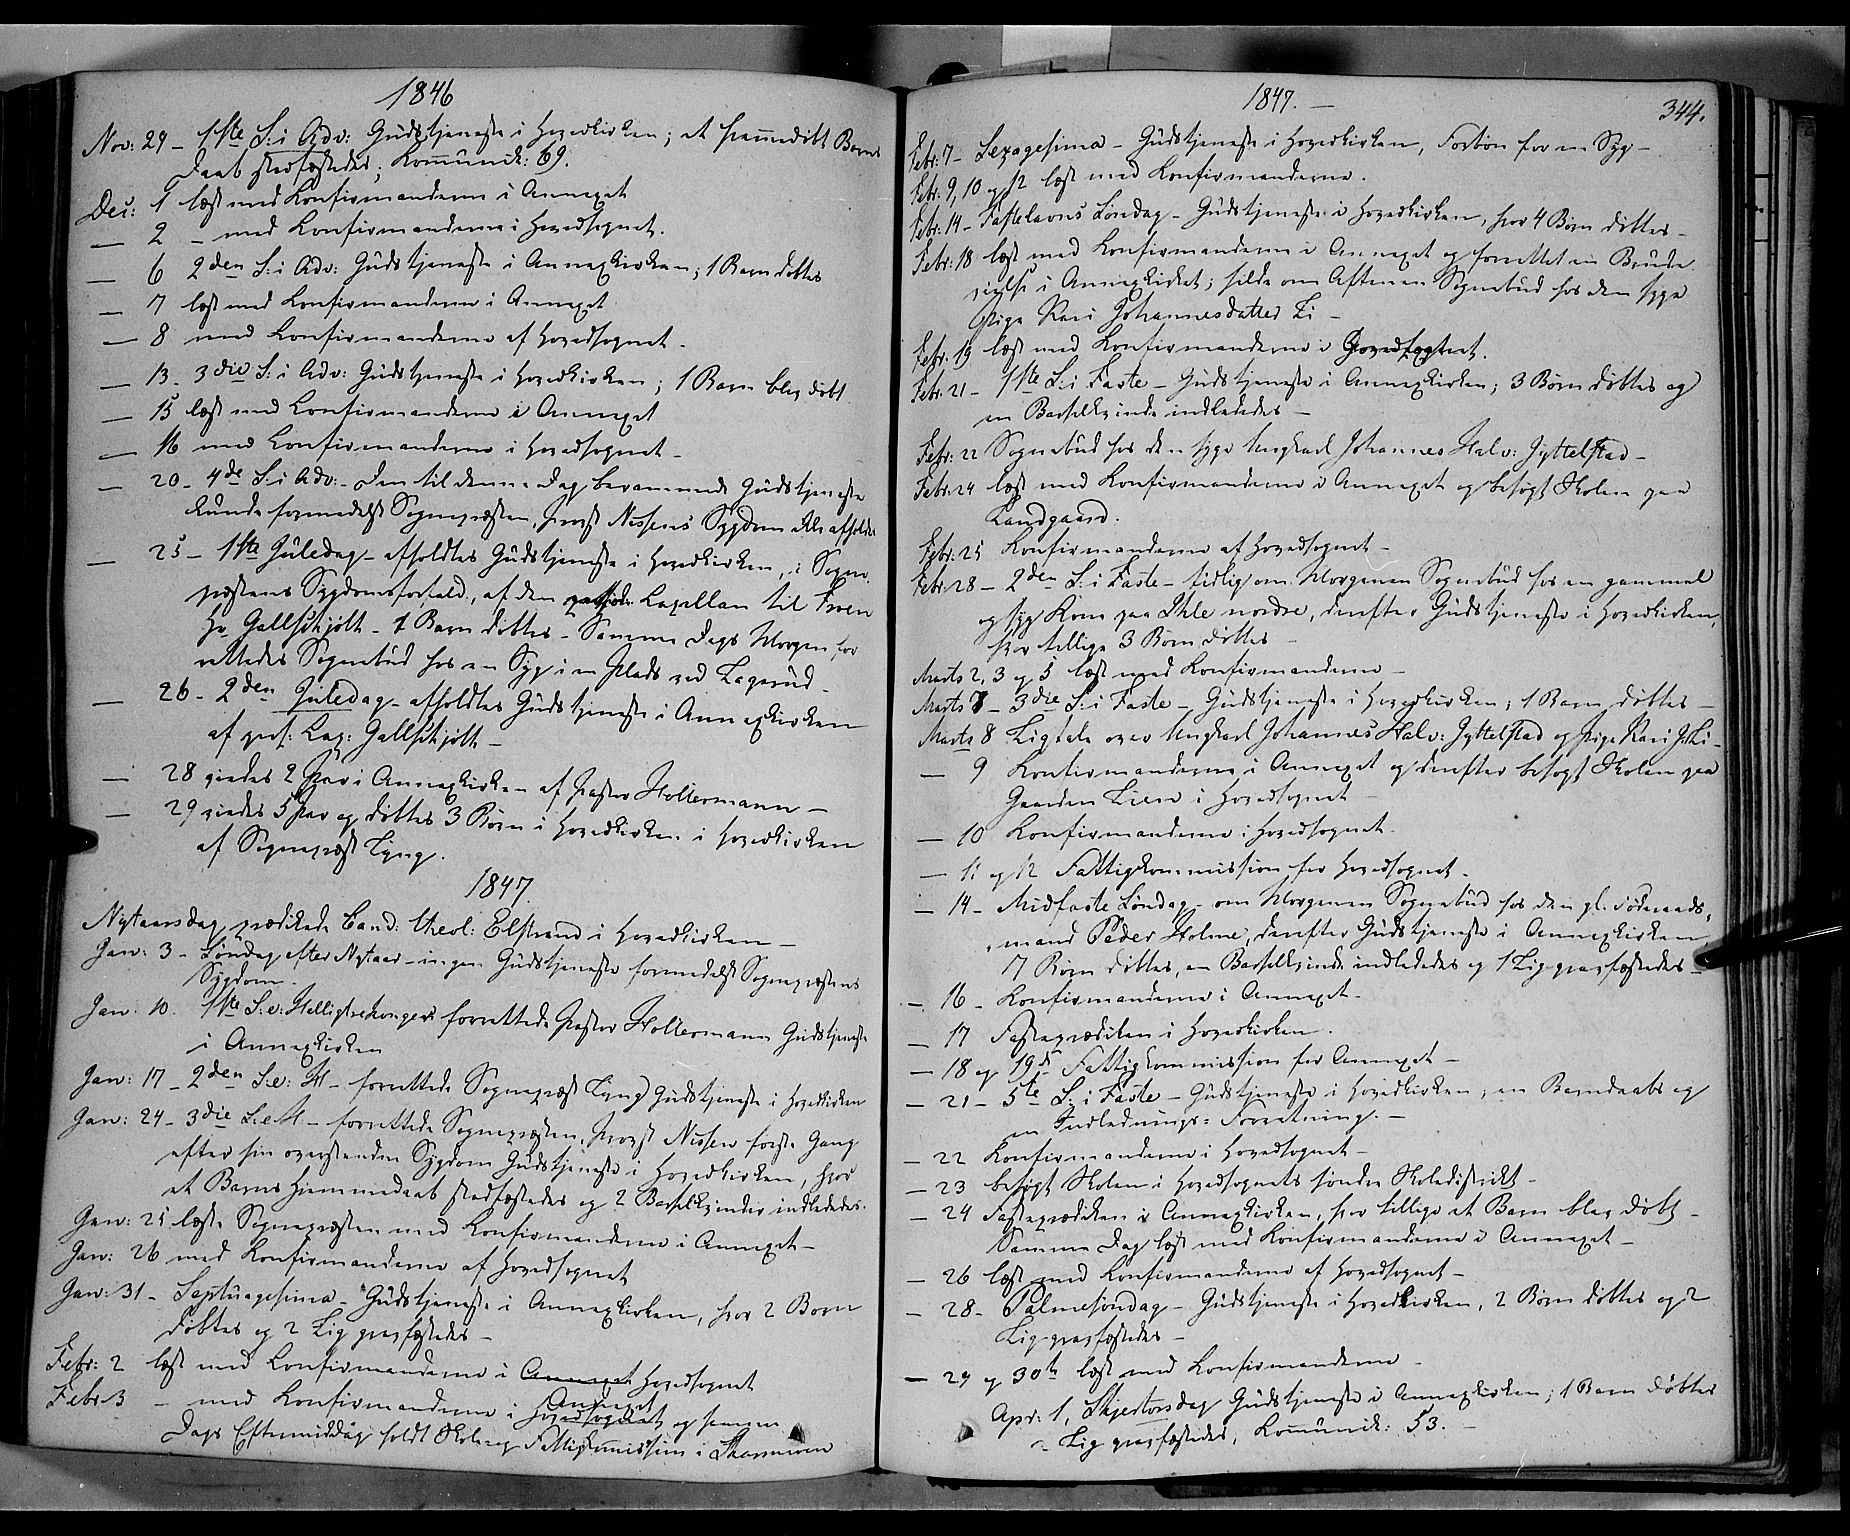 1846
Nov: 29 - 1ste S: i Adv: Gudstjeneste i Hovedkirken; et hjemmedøbt Barns
Daab stadfæstedes; Kommunik: 69.
Dec: 1 læst med Konfirmanderne i Annexet
— 2 - med Konfirmanderne i Hovedsognet.
— 6 2den S: i Adv: Gudstjeneste i Annexkirken; 1 Barn døbtes
— 7 læst med Konfirmanderne i Annexet
— 8 med Konfirmanderne af Hovedsognet -
— 13 - 3die S: i Adv: Gudstjeneste i Hovedkirken; 1 Barn blev døbt
— 15 læst med Konfirmanderne i Annexet
— 16 med Konfirmanderne i Hovedsognet -
— 20 - 4de S: i Adv: - Den til denne Dag berammede Gudstjeneste
kunde formedelst Sognepræsten, Provst Nissens Sygdom ikke afholdes
— 25 - 1ste Juledag - afholdtes Gudstjeneste i Hovedkirken, i Sogne-
præstens Sygdomsforfald, af den Kapellan til Froen
Hr Gallschjøtt - 1 Barn døbtes - Samme Dags Morgen for
rettedes Sognebud hos en Syg i en Plads ved Lagerud -
— 26 - 2den Juledag - afholdtes Gudstjeneste i Annexkirken
af pers: Kap: Gallschjøtt -
— 28 viedes 2 Par i Annexkirken af Pastor Hollermann -
— 29 viedes 5 Par og døbtes 3 Børn i Hovedkirken i Hovedkirken
af Sognepræst Lyng.
1847
Nytaarsdag prædikede Cand: theol: Elstrand i Hovedkirken -
Jan: 3 - Søndag efter Nytaar - ingen Gudstjeneste formedelst Sognepræstens
Sygdom -
Jan: 10. 1ste S: e: Helligtrekonger forrettede Pastor Hollermann Gudstjeneste
i Annexkirken
Jan: 17 - 2den S: e: H - forrettede Sognepræst Lyng Gudstjeneste i Hovedkirken
Jan: 24 - 3die S: e H - forrettede Sognepræsten, Provst Nissen første Gang
efter sin overstandne Sygdom Gudstjeneste i Hovedkirken, hvor
et Barns Hjemmedaab stadfæstedes og 2 Barselkvinder indlededes.
Jan: 25 læste Sognepræsten med Konfirmanderne i Annexet -
Jan: 26 med Konfirmanderne af Hovedsognet
Jan: 31 - Septuagesima - Gudstjeneste i Annexkirken, hvor 2 Børn
døbtes og 2 Lig gravfæstedes -
Febr: 2 læst med Konfirmanderne i Annexet Hovedsognet
Febr: 3 - med Konfirmanderne i Hovedsognet Annexet og samme
Dags Eftermiddag holdt Skole og Fattigkommission i
1847. -
344.
Febr: 7 - Sexagesima - Gudstjeneste i Hovedkirken, Forbøn for en Syg -
Febr: 9, 10 og 12 læst med Konfirmanderne.
Febr: 14 - Fastelavns Søndag - Gudstjeneste i Hovedkirken, hvor 4 Børn døbtes -
Febr: 18 læst med Konfirmanderne i Annexet og forrettet en Brude
vielse i Annexkirket; silde om Aftenen Sognebud hos den syge
Pige Kari Johannesdatter Li -
Febr: 19 læst med Konfirmanderne i Hovedsognet.
Febr: 21 - 1ste S: i Faste - Gudstjeneste i Annexkirken; 3 Børn døbtes og
en Barselkvinde indlededes -
Febr: 22 Sognebud hos den syge Ungkarl Johannes Halv: Jyttelstad -
Febr: 24 læst med Konfirmanderne i Annexet og besøgt Skolen paa
Landgaard.
Febr: 25 Konfirmanderne af Hovedsognet -
Febr: 28 - 2den S: i Faste - tidlig om Morgenen Sognebud hos en gammel
og syg Kone paa Ihle nordre, derefter Gudstjeneste i Hovedkirken,
hvor tillige 3 Børn døbtes -
Marts 2, 3 og 5 læst med Konfirmanderne -
Marts 7 - 3die S: i Faste - Gudstjeneste i Hovedkirken; 1 Barn døbtes -
Marts 8 Ligtale over Ungkarl Johannes Halv: Jyttelstad og Pige Kari J: Li -
— 9 Konfirmanderne i Annexet og derefter besøgt Skolen paa
Gaarden Lien i Hovedsognet -
— 10 Konfirmanderne i Hovedsognet.
— 11 og 12 Fattigkommission for Hovedsognet -
— 14 - Midfaste Søndag - om Morgenen Sognebud hos den gl: Føderaads-
mand Peder Holme, derefter Gudstjeneste i Annexkirken,
7 Børn døbtes, en Barselkvinde indlededes og 1 Lig gravfæstedes -
— 16 - Konfirmanderne i Annexet -
— 17 Fasteprædiken i Hovedkirken.
— 18 og 19de Fattigkommission for Annexet -
— 21 - 5te S: i Faste - Gudstjeneste i Hovedkirken, en Barnedaabs og
en Indlednings-Forretning. -
— 22 Konfirmanderne i Hovedsognet -
— 23 besøgt Skolen i Hovedsognets søndre Skoledistrikt -
— 24 Fasteprædiken i Annexkirken, hvor tillige et Barn blev døbt -
Samme Dag læst med Konfirmanderne i Annexet -
— 26 læst med Konfirmanderne af Hovedsognet -
— 28 - Palmesøndag - Gudstjeneste i Hovedkirken, 2 Børn døbtes og 2
Lig gravfæstedes -
— 29 og 30te læst med Konfirmanderne -
Apr: 1, Skjertorsdag Gudstjeneste i Annexkirken; 1 Barn døbtes
Lig gravfæstedes, Kommunik: 53. -